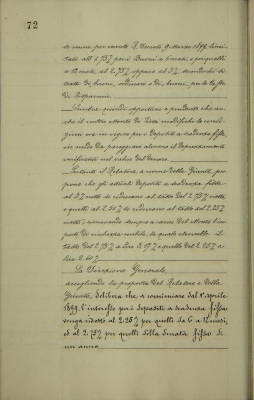 72
to venne, per recente R. Decreto 9 Marzo 1899, limi-
tato all' 1.75% per i Buoni a 6 mesi, e per quelli
a 12 mesi, al 2.75% oppure al 3% secondochè si
tratti di buoni, ordinari o di buoni, per le Casse
di Risparmio.
Sarebbe quindi opportuno e prudente che an-
che il nostro Monte di Pietà modificasse le condi-
zioni ora in vigore per i depositi a scadenza fissa,
in modo da pareggiare almeno il deprezzamento
verificatosi nel valore del denaro.
Pertanto il Relatore a nome della Giunta, pro-
pone che gli attuali depositi a scadenza fissa
al 3% netto si riducano al tasso del 2.75% netto
e quelli al 2.50% si riducano al tasso del 2.25%
netto, rimanendo sempre a carico del Monte l'im-
posta di ricchezza mobile, la quale eleverebbe il
tasso del 2.75% a Lire 3.  e quello del 2.25% a
Lire 2.
La Direzione Generale,
accogliendo la proposta del Relatore e della
Giunta, delibera che a cominciare dal 1° aprile
1899, l'interesse per i depositi a scadenza fissa
venga ridotto al 2.25% per quelli da 6 a 12 mesi,
ed al 2.75% per quelli della durata fissa di
un anno